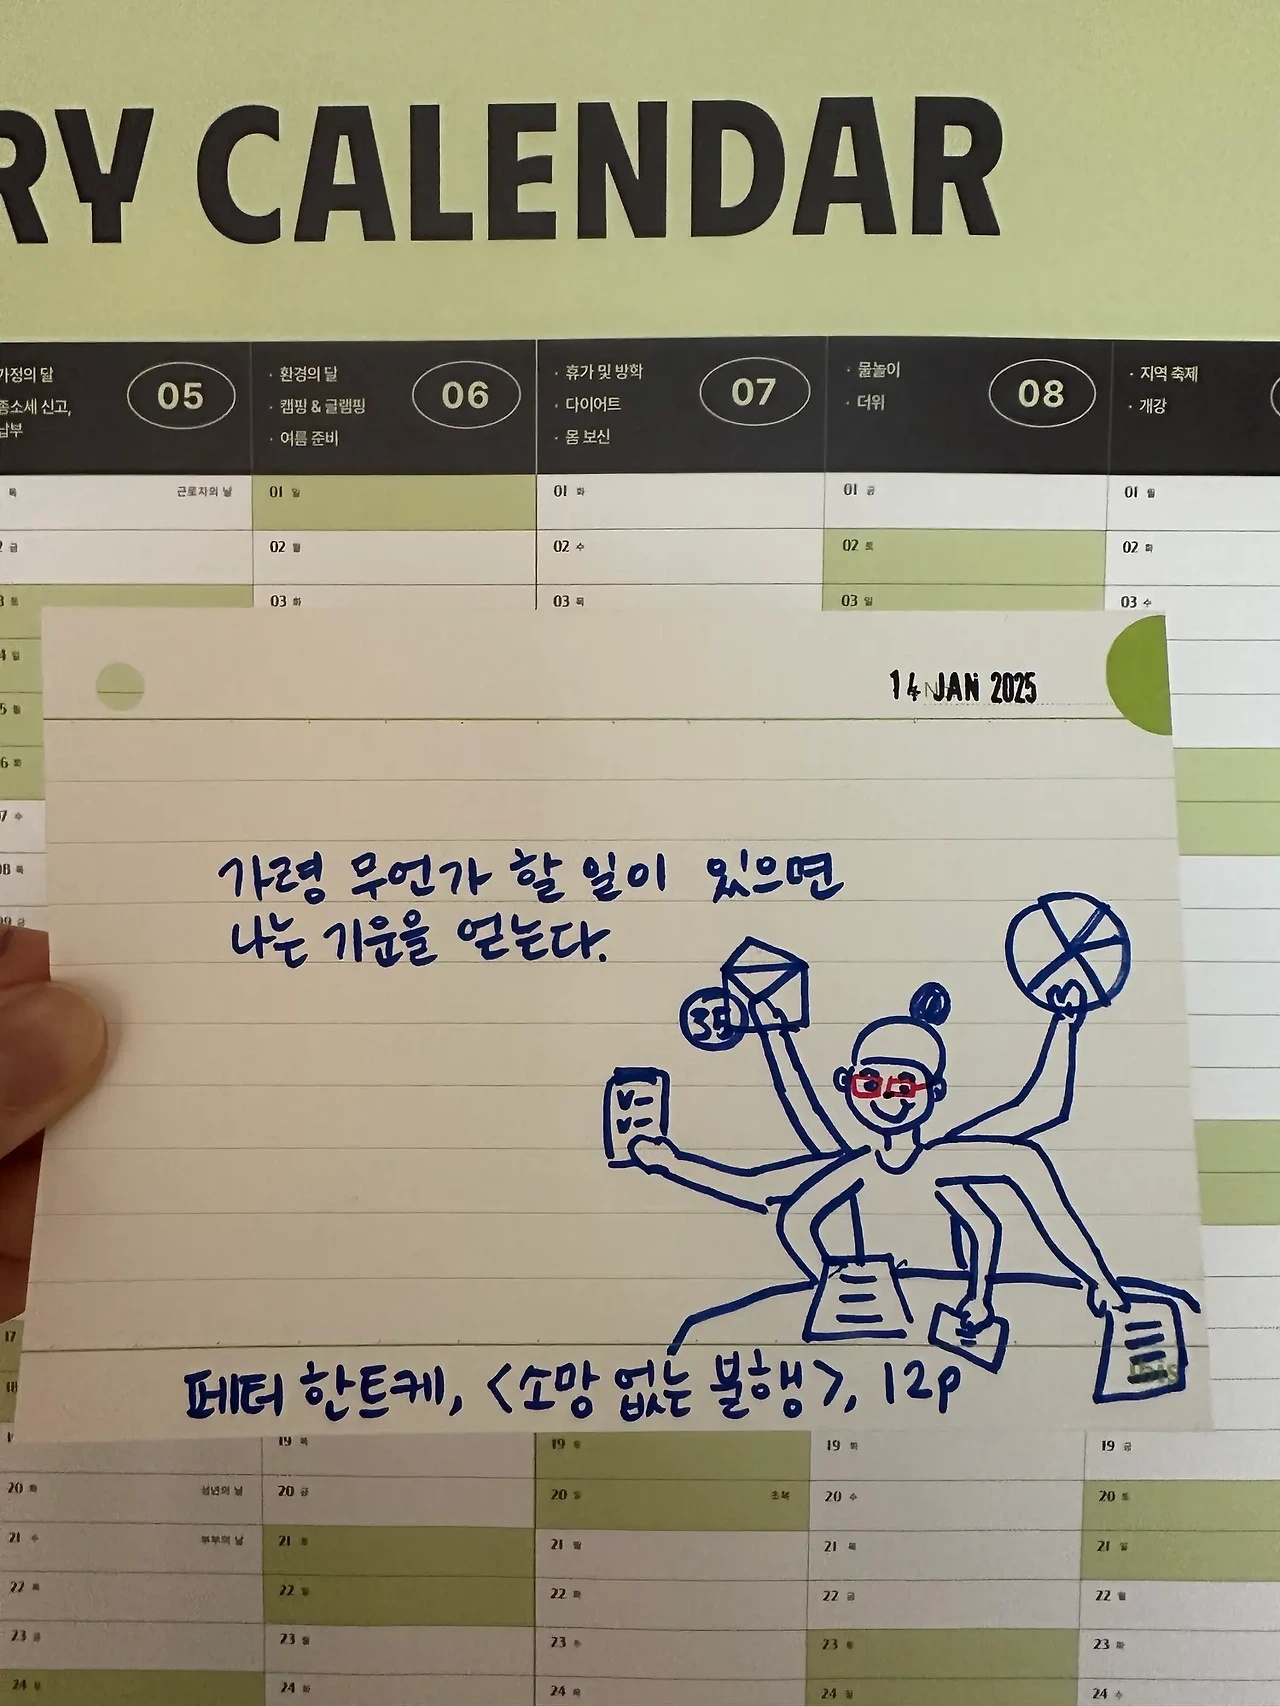 RY CALENDAR
가정의 달
종소세 신고,
납부
05
· 환경의 달
· 캠핑 & 글램핑
· 여름 준비
06
· 휴가 및 방학
· 다이어트
· 몸 보신
07
· 물놀이
· 더위
08
· 지역 축제
· 개강
목 근로자의 날
01 일
01 화
01 금
01 월
2 금
02 월
02 수
02 토
02 화
3 토
03 화
03 목
03 일
03 수
4 일
5 월
6 화
07 수
08 목
09 금
14 JAN 2025
가령 무언가 할 일이 있으면
나는 기운을 얻는다.
35
페터 한트케, <소망 없는 불행>, 12p
17
18
19 목
19 토
19 화
19 금
20 화 성년의 날
20 금
20 일 초복
20 수
20 토
21 수 부부의 날
21 토
21 월
21 목
21 일
22 목
22 일
22 화
22 금
22 월
23 금
23 월
23 수
23 토
23 화
24 토
24 화
24 목
24 일
24 수